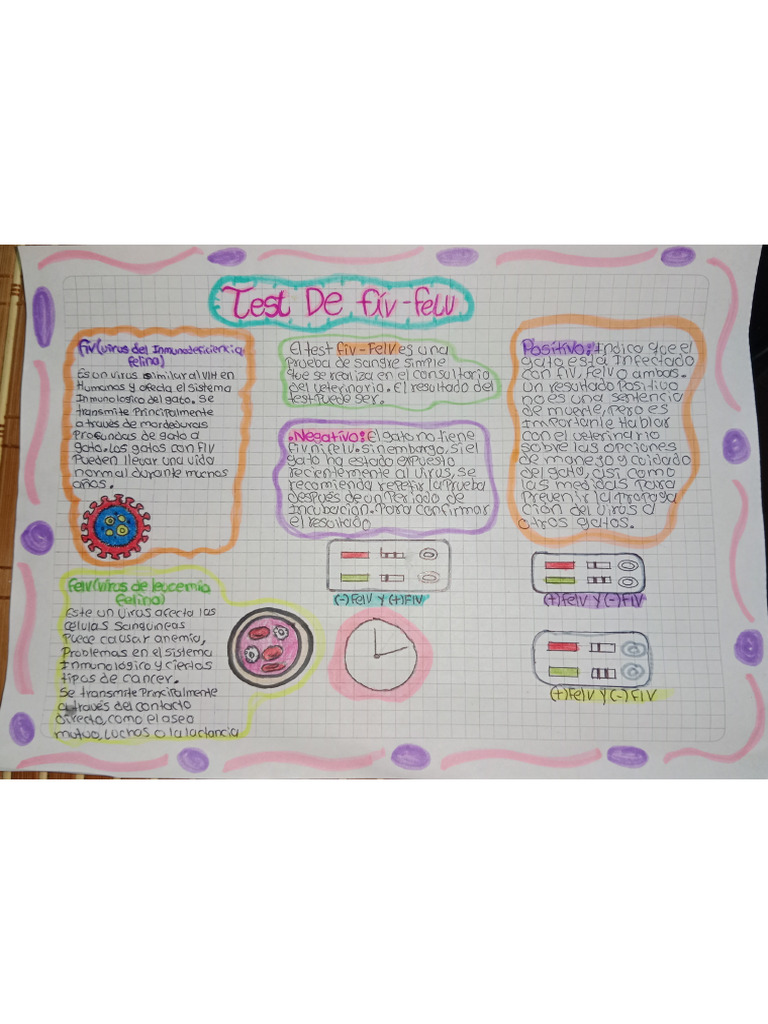 Test De fiv-felv
fiv(virus del Inmunodeficiencia
felina)
Es un virus similar al VIH en
Humanos y afecta el sistema
Inmunologico del gato. Se
transmite Principalmente
a través de mordeduras
Profundas de gato a
gato. Los gatos con FIV
Pueden llevar una vida
normal durante muchos
años.
felv(virus de leucemia
felina)
Este un virus afecta las
células sanguineas
Puede causar anemia,
Problemas en el sistema
Inmunológico y ciertos
tipos de cancer.
Se transmite Principalmente
a través del contacto
directo, como el aseo
mutuo, luchas o la lactancia
El test fiv-Felv es una
Prueba de sangre simple
que se realiza en el consultorio
del veterinario. El resultado del
test Puede ser.
.Negativo: El gato no tiene
fiv ni felv. Sin embargo, si el
gato ha estado expuesto
recientemente al virus, se
recomienda repetir la Prueba
después de un Periodo de
Incubación. Para confirmar
el resultado
(-) Felv y (+) FIV
Positivo: Indica que el
gato esta Infectado
con fiv, felv o ambos.
un resultado Positivo
no es una sentencia
de muerte, Pero es
Importante Hablar
con el veterinario
sobre las opciones
de manejo y cuidado
del gato, asi como
las medidas Para
Prevenir la Propaga
ción del virus a
otros gatos.
(+) Felv y (-) FIV
(+) Felv y (-) FIV